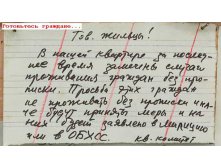 Готовьтесь граждано...
Тов. жильцы!
В нашей квартире за послед-
нее время замечены случаи
проживания граждан без про-
писки. Просьба этих граждан
не проживать без прописки ина-
че будут приняты меры и на
них будет заявлено в милицию
или в ОБХСС.
кв. комитет